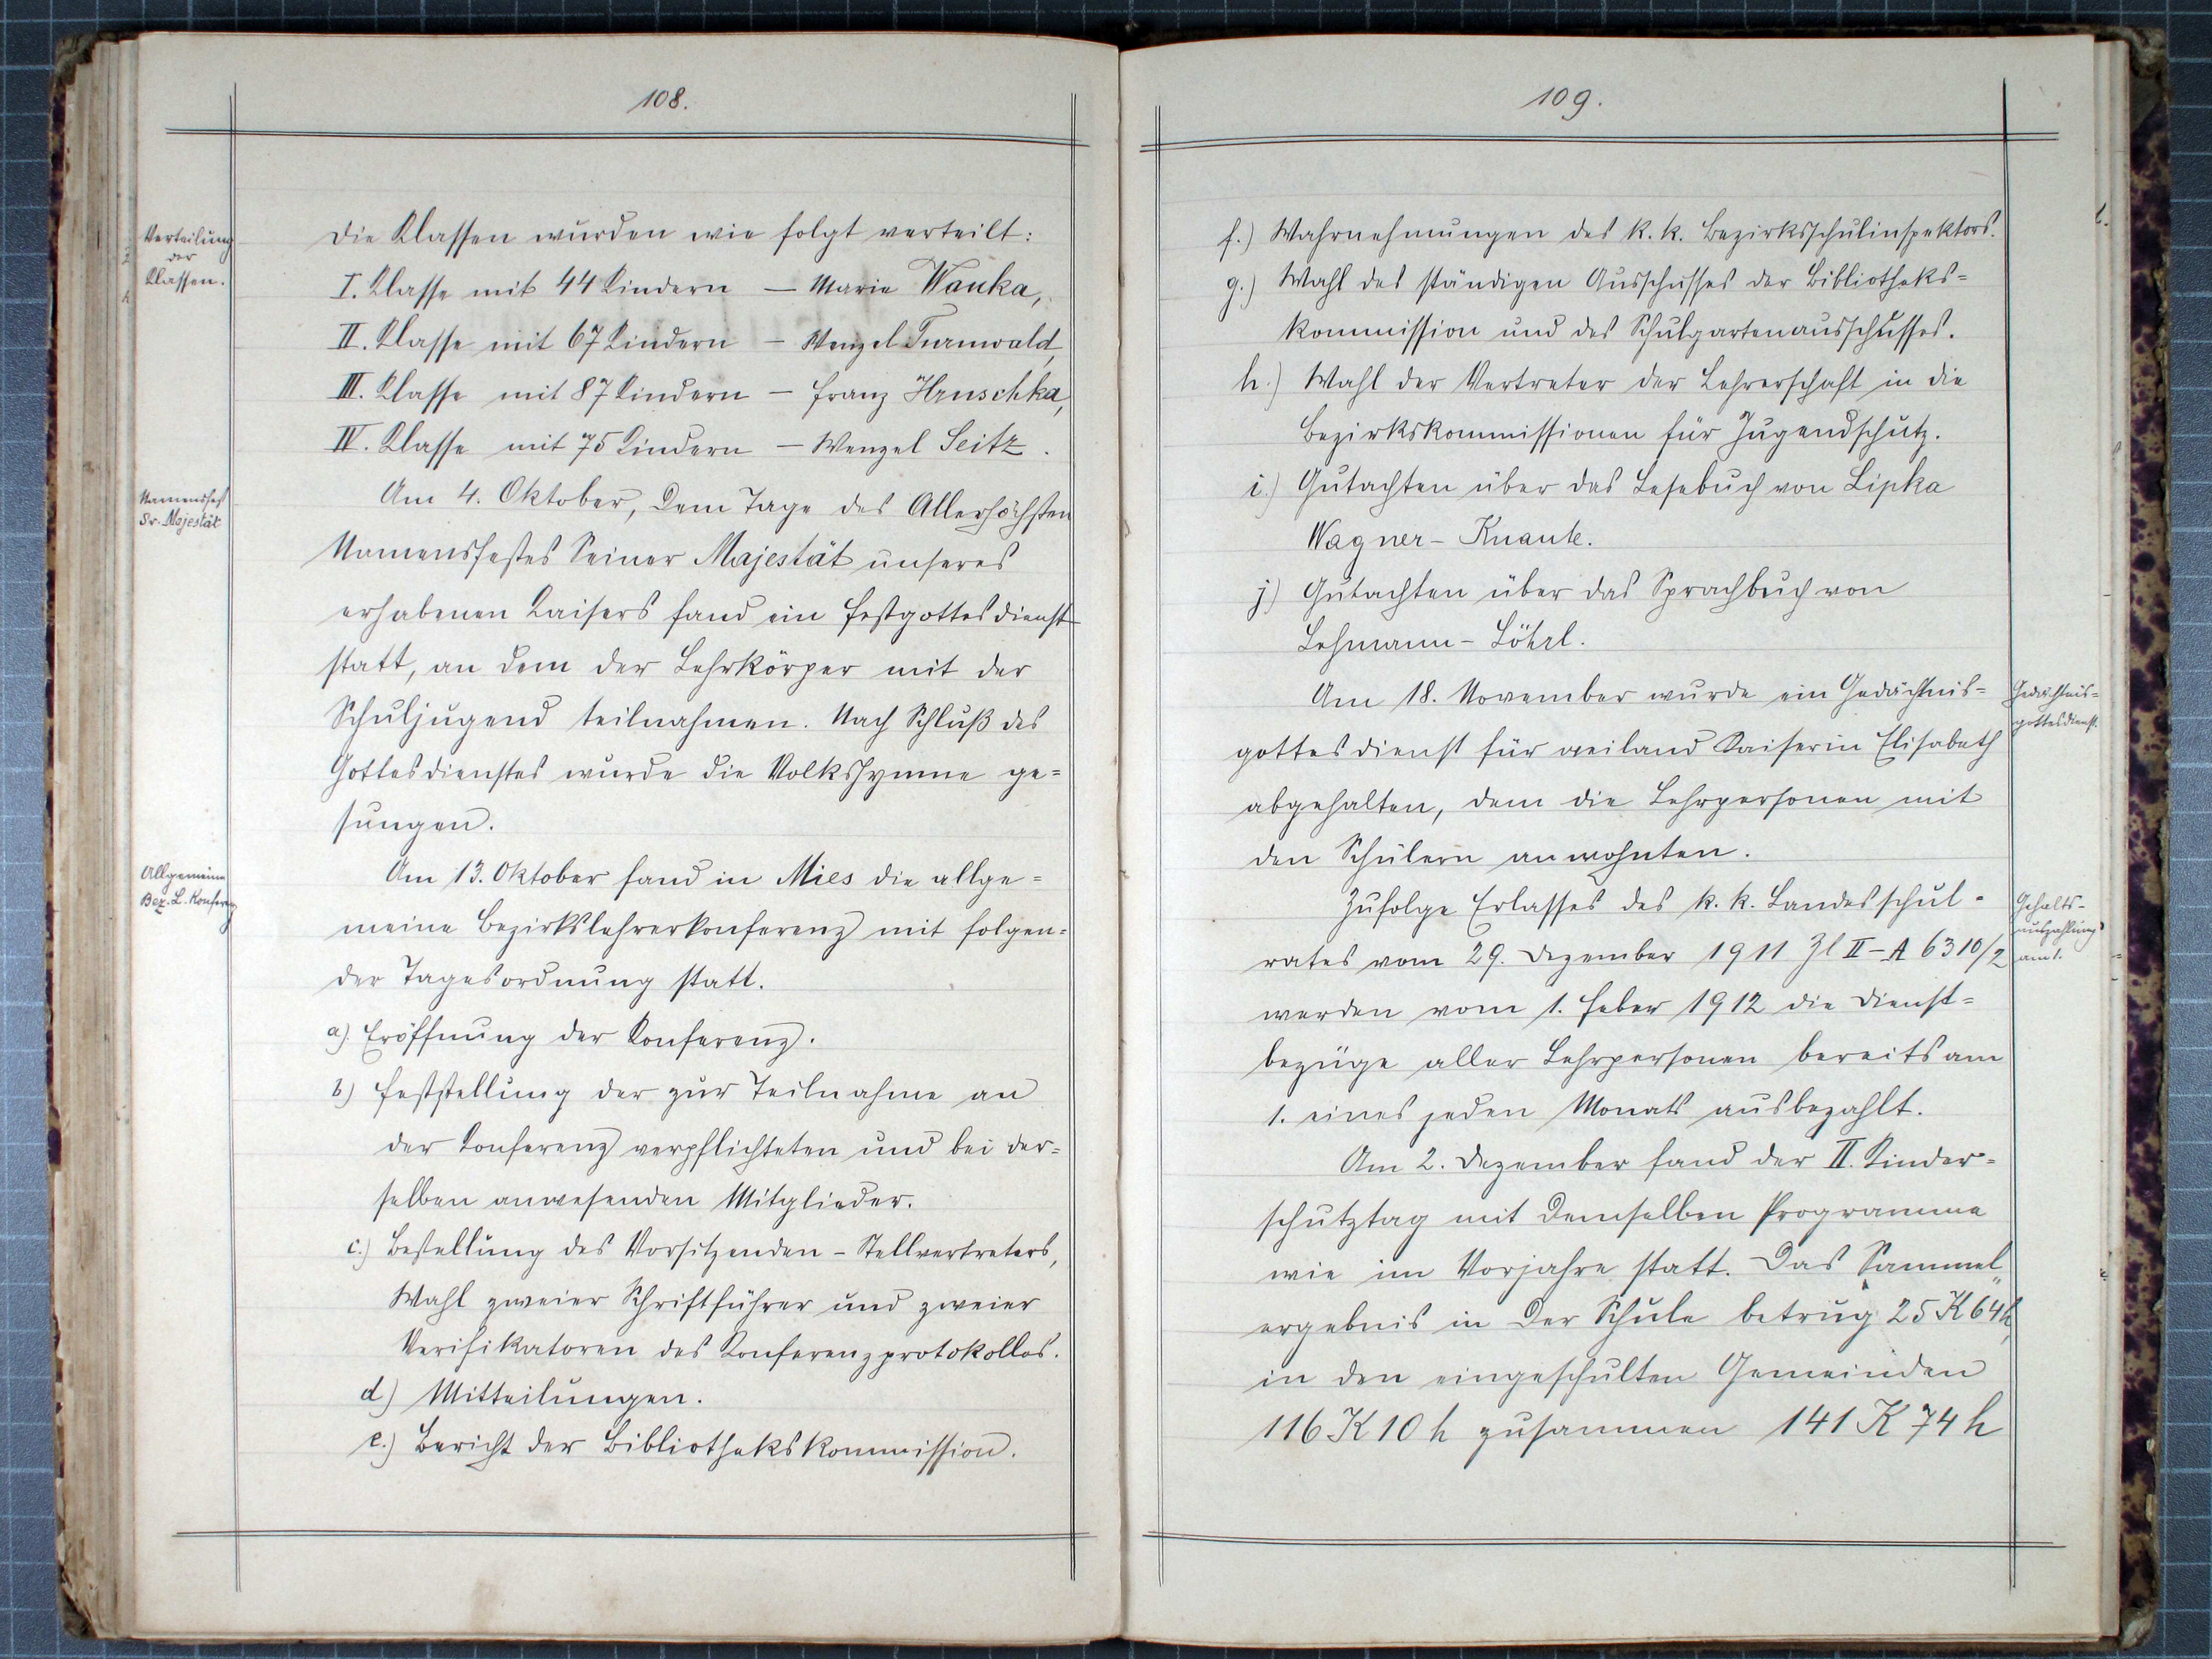 108.
Verteilung
der
Klassen.
Die Klassen wurden wie folgt verteilt:
I. Klasse mit 44 Kindern – Marie Wanka,
II. Klasse mit 67 Kindern – Wenzel Turnwald,
III. Klasse mit 87 Kindern – Franz Hruschka,
IV. Klasse mit 75 Kindern – Wenzel Seitz.
Namensfest
Sr. Majestät
Am 4. Oktober, dem Tage des Allerhöchsten
Namensfestes Seiner Majestät unseres
erhabenen Kaisers fand ein Festgottesdienst
statt, an dem der Lehrkörper mit der
Schuljugend teilnahmen. Nach Schluß des
Gottesdienstes wurde die Volkshymne ge=
sungen.
Allgemeine
Bez. L. Konferenz
Am 13. Oktober fand in Mies die allge=
meine Bezirkslehrerkonferenz mit folgen=
der Tagesordnung statt.
a) Eröffnung der Konferenz.
b) Feststellung der zur Teilnahme an
der Konferenz verpflichteten und bei der=
selben anwesenden Mitglieder.
c.) Bestellung des Vorsitzenden-Stellvertreters,
Wahl zweier Schriftführer und zweier
Verifikatoren des Konferenzprotokolles.
d) Mitteilungen.
e.) Bericht der Bibliothekskommission.
109.
f.) Wahrnehmungen des k. k. Bezirksschulinspektors.
g.) Wahl des ständigen Ausschusses der Bibliotheks=
kommission und des Schulgartenausschusses.
h.) Wahl der Vertreter der Lehrerschaft in die
Bezirkskommissionen für Jugendschutz.
i.) Gutachten über das Lesebuch von Lipka
Wagner-Knaute.
j) Gutachten über das Sprachbuch von
Lehmann-Löhrl.
Am 18. November wurde ein Gedächtnis=
Gedächtnis=
gottesdienst.
gottesdienst für weiland Kaiserin Elisabeth
abgehalten, dem die Lehrpersonen mit
den Schülern anwohnten.
Zufolge Erlasses des k. k. Landesschul=
Gehalts-
auszahlung
am 1.
rates vom 29. Dezember 1911 Zl II-A 6310/2
werden vom 1. Feber 1912 die Dienst=
bezüge aller Lehrpersonen bereits am
1. eines jeden Monats ausbezahlt.
Am 2. Dezember fand der II. Kinder=
schutztag mit demselben Programme
wie im Vorjahre statt. Das Sammel„
ergebnis in der Schule betrug 25 K 64 h,
in den eingeschulten Gemeinden
116 K 10 h zusammen 141 K 74 h